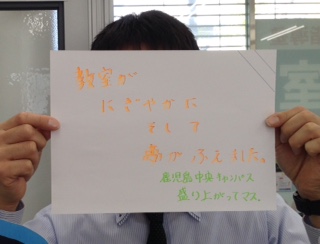 教室が
にぎやかに
そして
歯がふえました。
鹿児島中央キャンパス
盛り上がってマス。
室